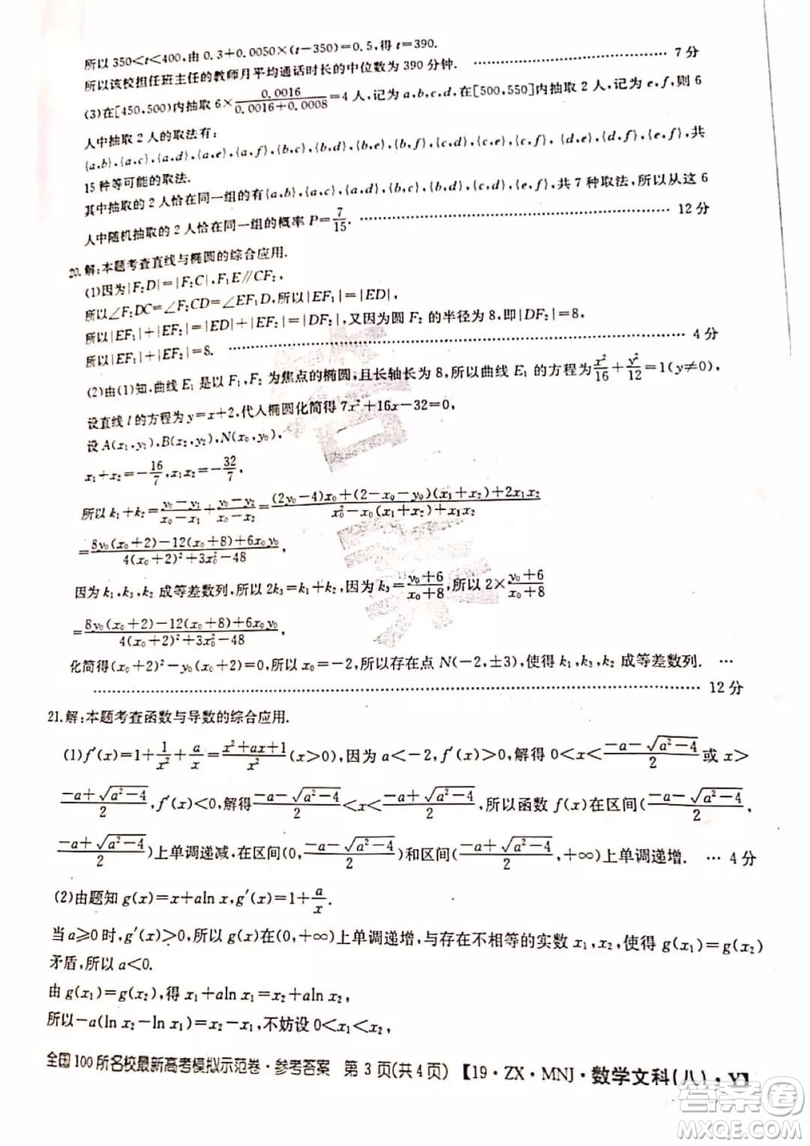 所以 350<t<400,由 0.3+0.0050×(t-350)=0.5,得 t=390.
所以该校担任班主任的教师月平均通话时长的中位数为 390 分钟. ………… 7 分
(3)在[450,500)内抽取 6×0.0016/(0.0016+0.0008)=4 人,记为 a,b,c,d,在[500,550]内抽取 2 人,记为 e,f,则从 6
人中抽取 2 人的取法有:
{a,b},{a,c},{a,d},{a,e},{a,f},{b,c},{b,d},{b,e},{b,f},{c,d},{c,e},{c,f},{d,e},{d,f},{e,f},共
15 种等可能的取法.
其中抽取的 2 人恰在同一组的有{a,b},{a,c},{a,d},{b,c},{b,d},{c,d},{e,f},共 7 种取法,所以从这 6
人中随机抽取的 2 人恰在同一组的概率 P=7/15. ………… 12 分
20.解:本题考查直线与椭圆的综合应用.
(1)因为|F₂D|=|F₂C|,F₁E∥CF₂,
所以∠F₂DC=∠F₂CD=∠EF₁D,所以|EF₁|=|ED|,
所以|EF₁|+|EF₂|=|ED|+|EF₂|=|DF₂|,又因为圆 F₂ 的半径为 8,所以|DF₂|=8,
所以|EF₁|+|EF₂|=8. ………… 4 分
(2)由(1)知,曲线 E₁ 是以 F₁,F₂ 为焦点的椭圆,且长轴长为 8,所以曲线 E₁ 的方程为x²/16+y²/12=1(y≠0).
设直线 l 的方程为 y=x+2,代入椭圆化简得 7x²+16x-32=0,
设 A(x₁,y₁),B(x₂,y₂),N(x₀,y₀),
x₁+x₂=-16/7,x₁x₂=-32/7,
所以 k₁+k₂=(y₀-y₁)/(x₀-x₁)+(y₀-y₂)/(x₀-x₂)=((2y₀-4)x₀+(2-x₀-y₀)(x₁+x₂)+2x₁x₂)/(x₀²-x₀(x₁+x₂)+x₁x₂)
=(8y₀(x₀+2)-12(x₀+8)+6x₀)/(4(x₀+2)²+3x₀²-48)
因为 k₁,k₃,k₂ 成等差数列,所以 2k₃=k₁+k₂,因为 k₃=(y₀+6)/(x₀+8),所以 2×(y₀+6)/(x₀+8)
=(8y₀(x₀+2)-12(x₀+8)+6x₀)/(4(x₀+2)²+3x₀²-48),
化简得(x₀+2)²+(y₀²-9)²=0,所以存在点 N(-2,±3),使得 k₁,k₃,k₂ 成等差数列. …
………… 12 分
21.解:本题考查函数与导数的综合应用.
(1)f′(x)=1+1/x²+a/x=(x²+ax+1)/x²(x>0),因为 a<-2,f′(x)>0,解得 0<x<(-a-√(a²-4))/2或 x>
(-a+√(a²-4))/2,f′(x)<0,解得(-a-√(a²-4))/2<x<(-a+√(a²-4))/2,所以函数 f(x)在区间((-a-√(a²-4))/2,
(-a+√(a²-4))/2)上单调递减,在区间(0,(-a-√(a²-4))/2)和区间((-a+√(a²-4))/2,+∞)上单调递增. … 4 分
(2)由题知 g(x)=x+aln x,g′(x)=1+a/x.
当 a≥0 时,g′(x)>0,所以 g(x)在(0,+∞)上单调递增,与存在不相等的实数 x₁,x₂,使得 g(x₁)=g(x₂)
矛盾,所以 a<0.
由 g(x₁)=g(x₂),得 x₁+aln x₁=x₂+aln x₂,
所以-a(ln x₂-ln x₁)=x₂-x₁,不妨设 0<x₁<x₂,
全国 100 所名校最新高考模拟示范卷·参考答案 第 3 页(共 4 页) 【19·ZX·MNJ·数学文科(八)·Y】
答案